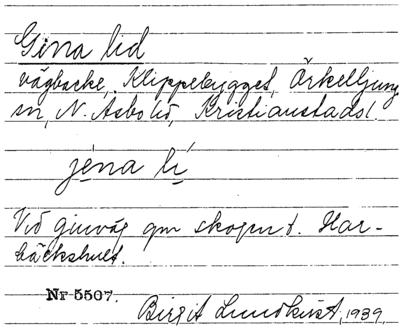 Gina lid
vägbacke, Klippebygget, Örkelljunga
sn, N. Åsbo hd, Kristianstads l.
jèna lí
Vid ginväg gm skogen t. Har-
bäckshult.
Nr 5507.
Birgit Lundkvist, 1939.